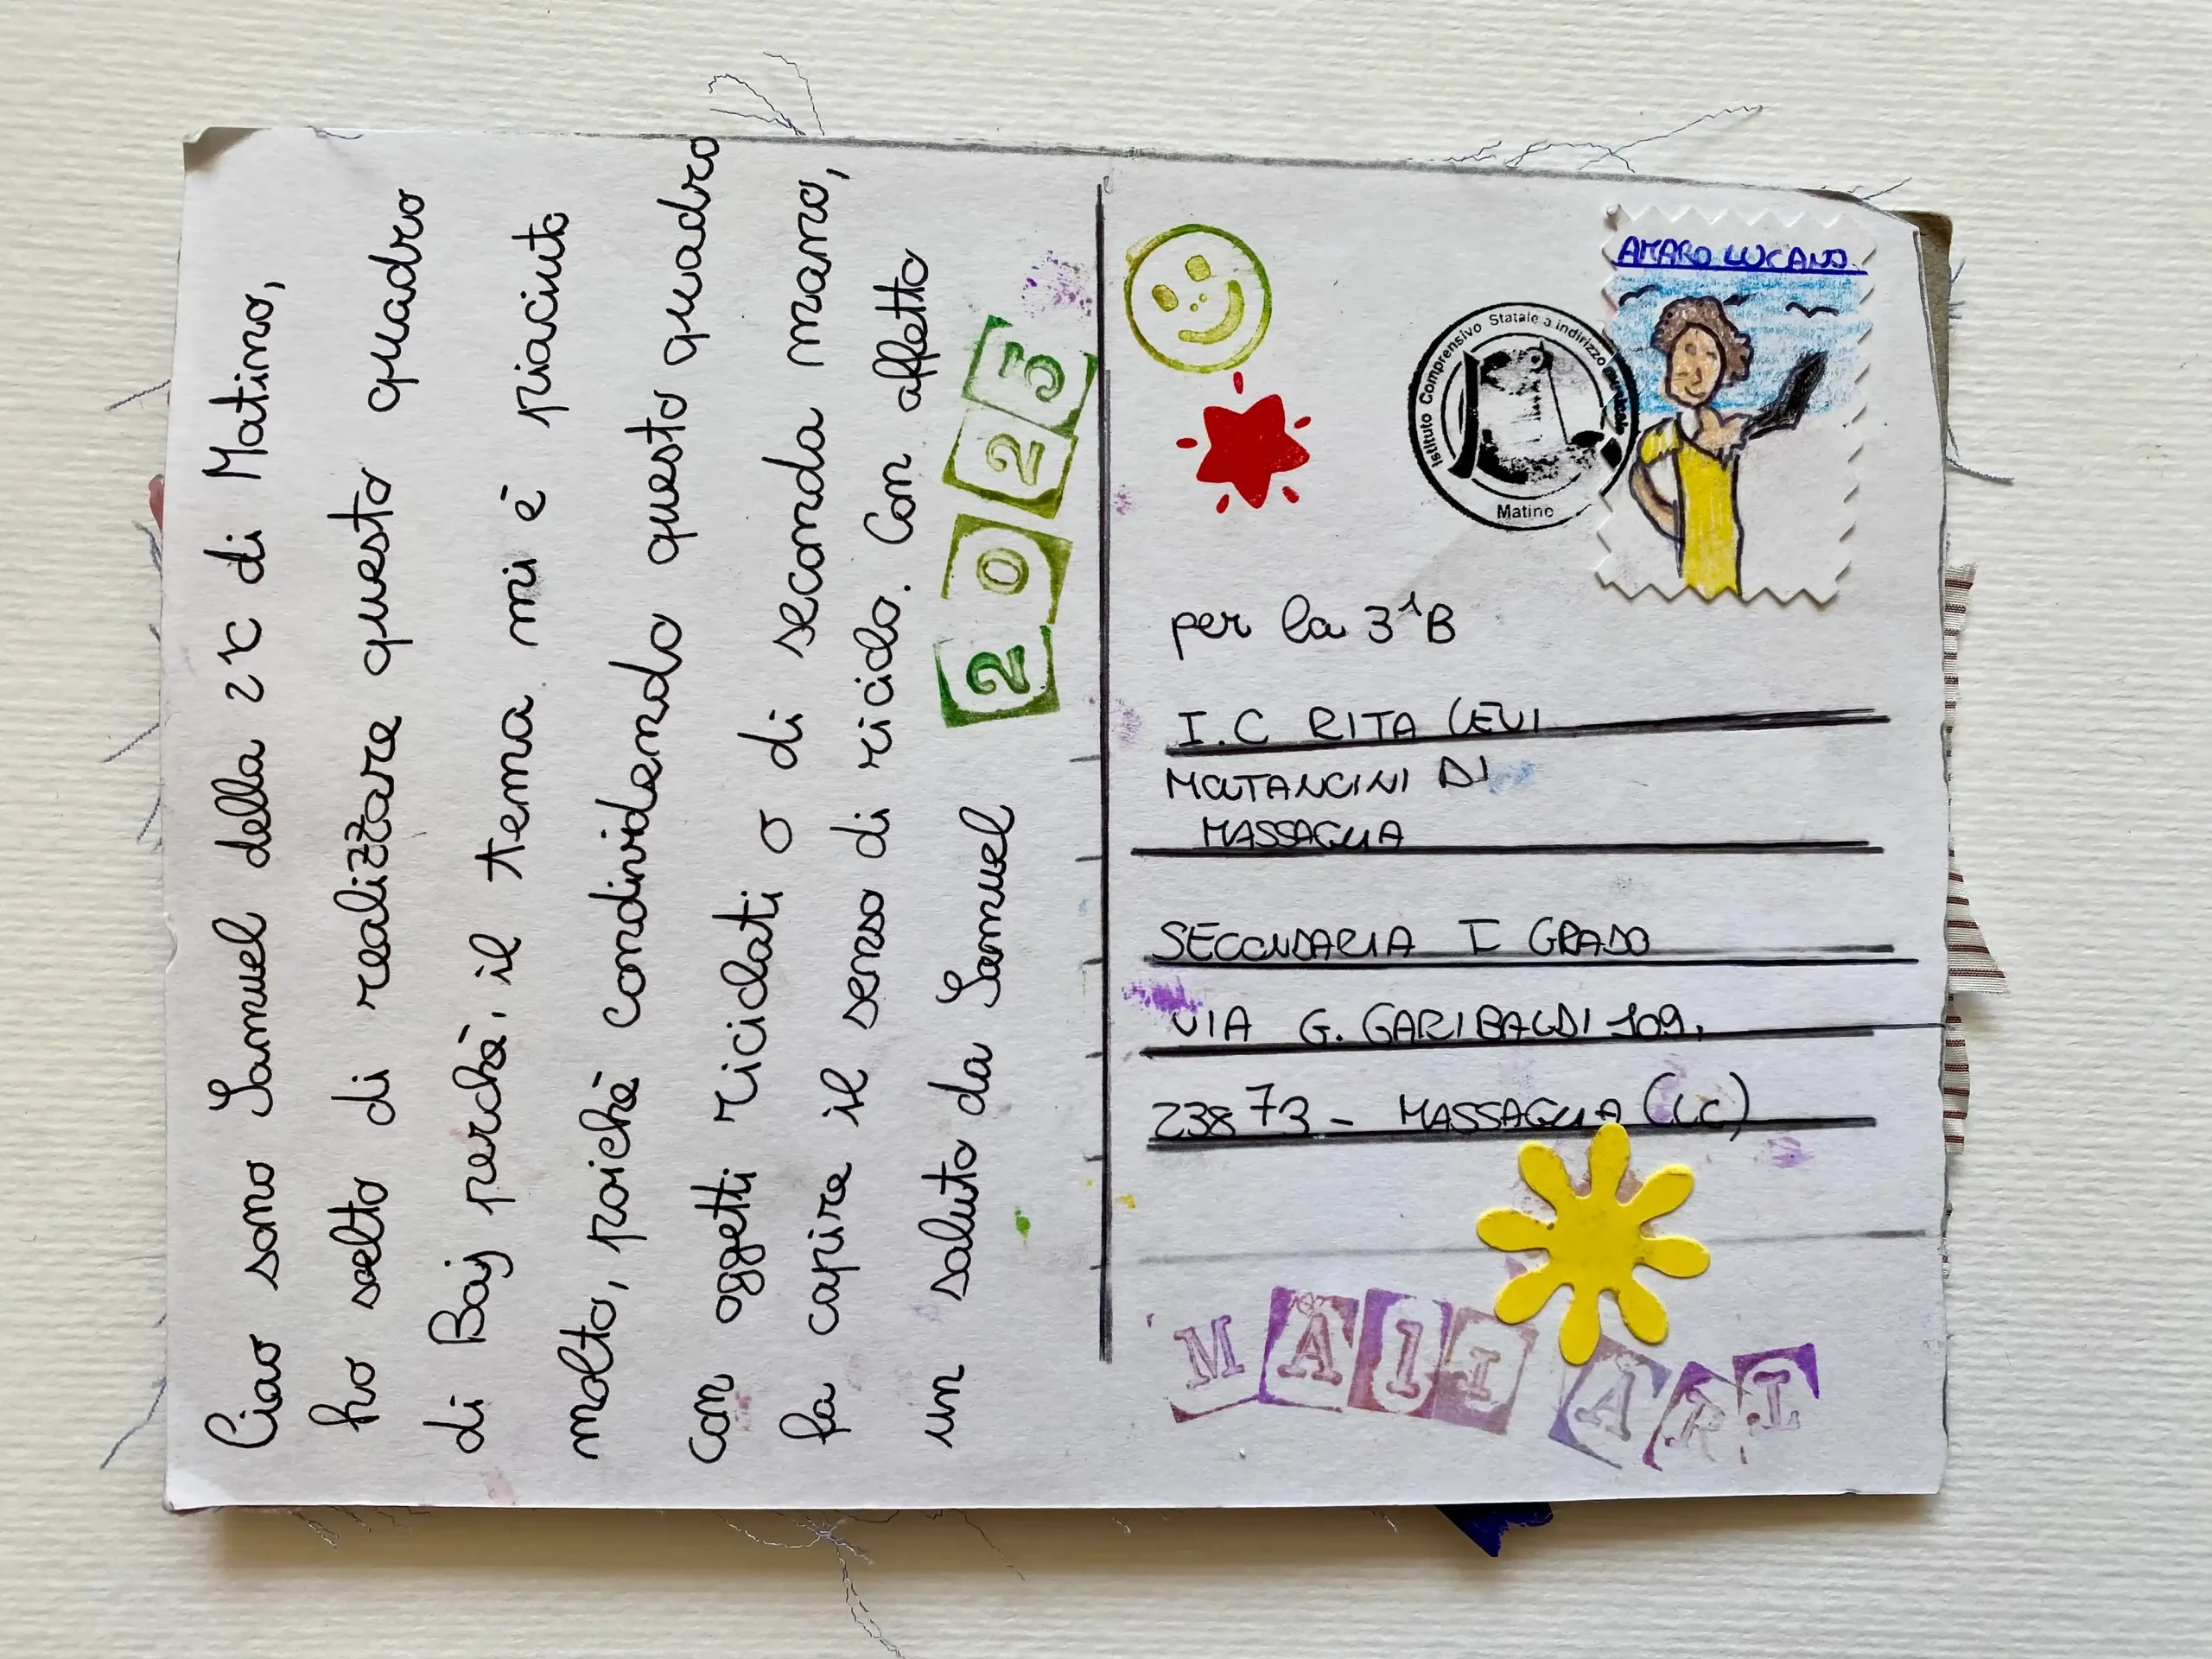 Ciao sono Samuel della 2ᵃC di Matino,
ho scelto di realizzare questo quadro
di Baj perchè, il tema mi è piaciuto
molto, poichè condividendo questo quadro
con oggetti riciclati o di seconda mano,
fa capire il senso di riciclo. Con affetto
un saluto da Samuel
2025
AMARO LUCANO
Istituto Comprensivo Statale a indirizzo musicale
Matino
per la 3ᴬB
I.C RITA LEVI
MOTANCINI DI
MASSAGLIA
SECONDARIA I GRADO
VIA G. GARIBALDI 109,
23873 - MASSAGLIA (LC)
MAIL ART